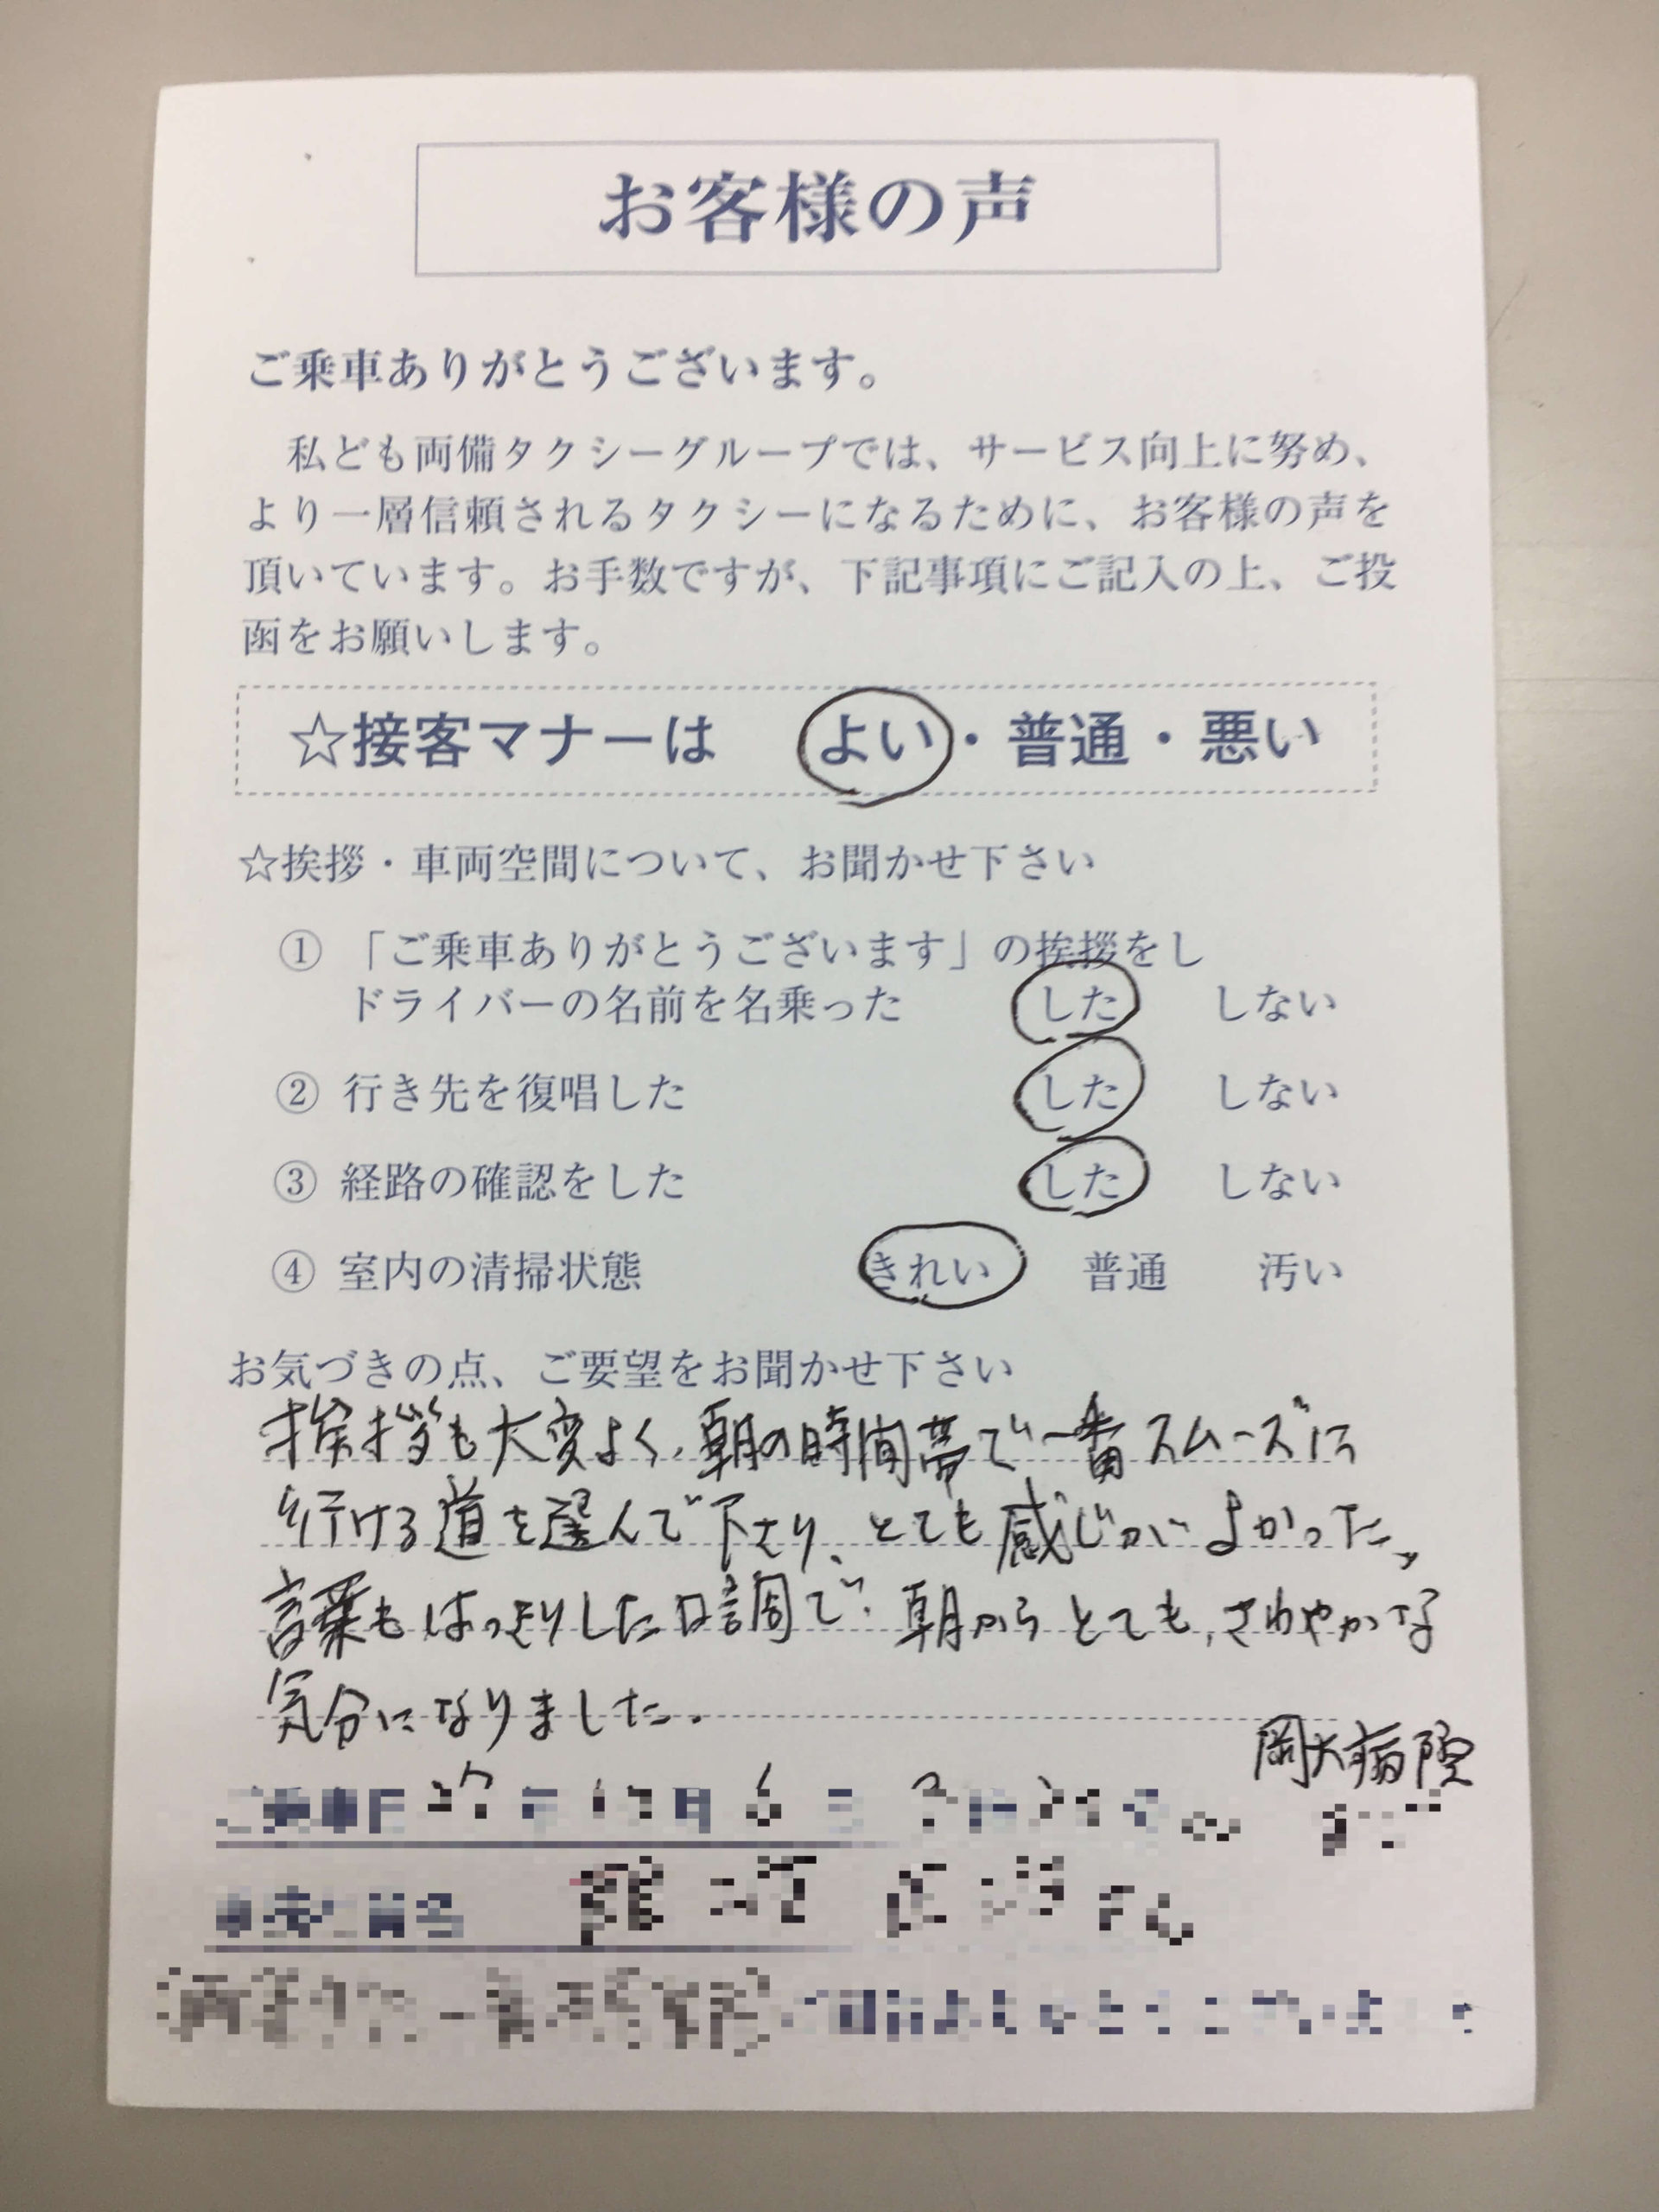 お客様の声
ご乗車ありがとうございます。
私ども両備タクシーグループでは、サービス向上に努め、
より一層信頼されるタクシーになるために、お客様の声を
頂いています。お手数ですが、下記事項にご記入の上、ご投
函をお願いします。
☆接客マナーは よい・普通・悪い
☆挨拶・車両空間について、お聞かせ下さい
① 「ご乗車ありがとうございます」の挨拶をし
ドライバーの名前を名乗った した しない
② 行き先を復唱した した しない
③ 経路の確認をした した しない
④ 室内の清掃状態 きれい 普通 汚い
お気づきの点、ご要望をお聞かせ下さい
挨拶も大変よく、朝の時間帯で一番スムーズに
行ける道を選んで下さり、とても感じがよかった。
言葉もはっきりした口調で、朝からとても、さわやかな
気分になりました。
岡大病院